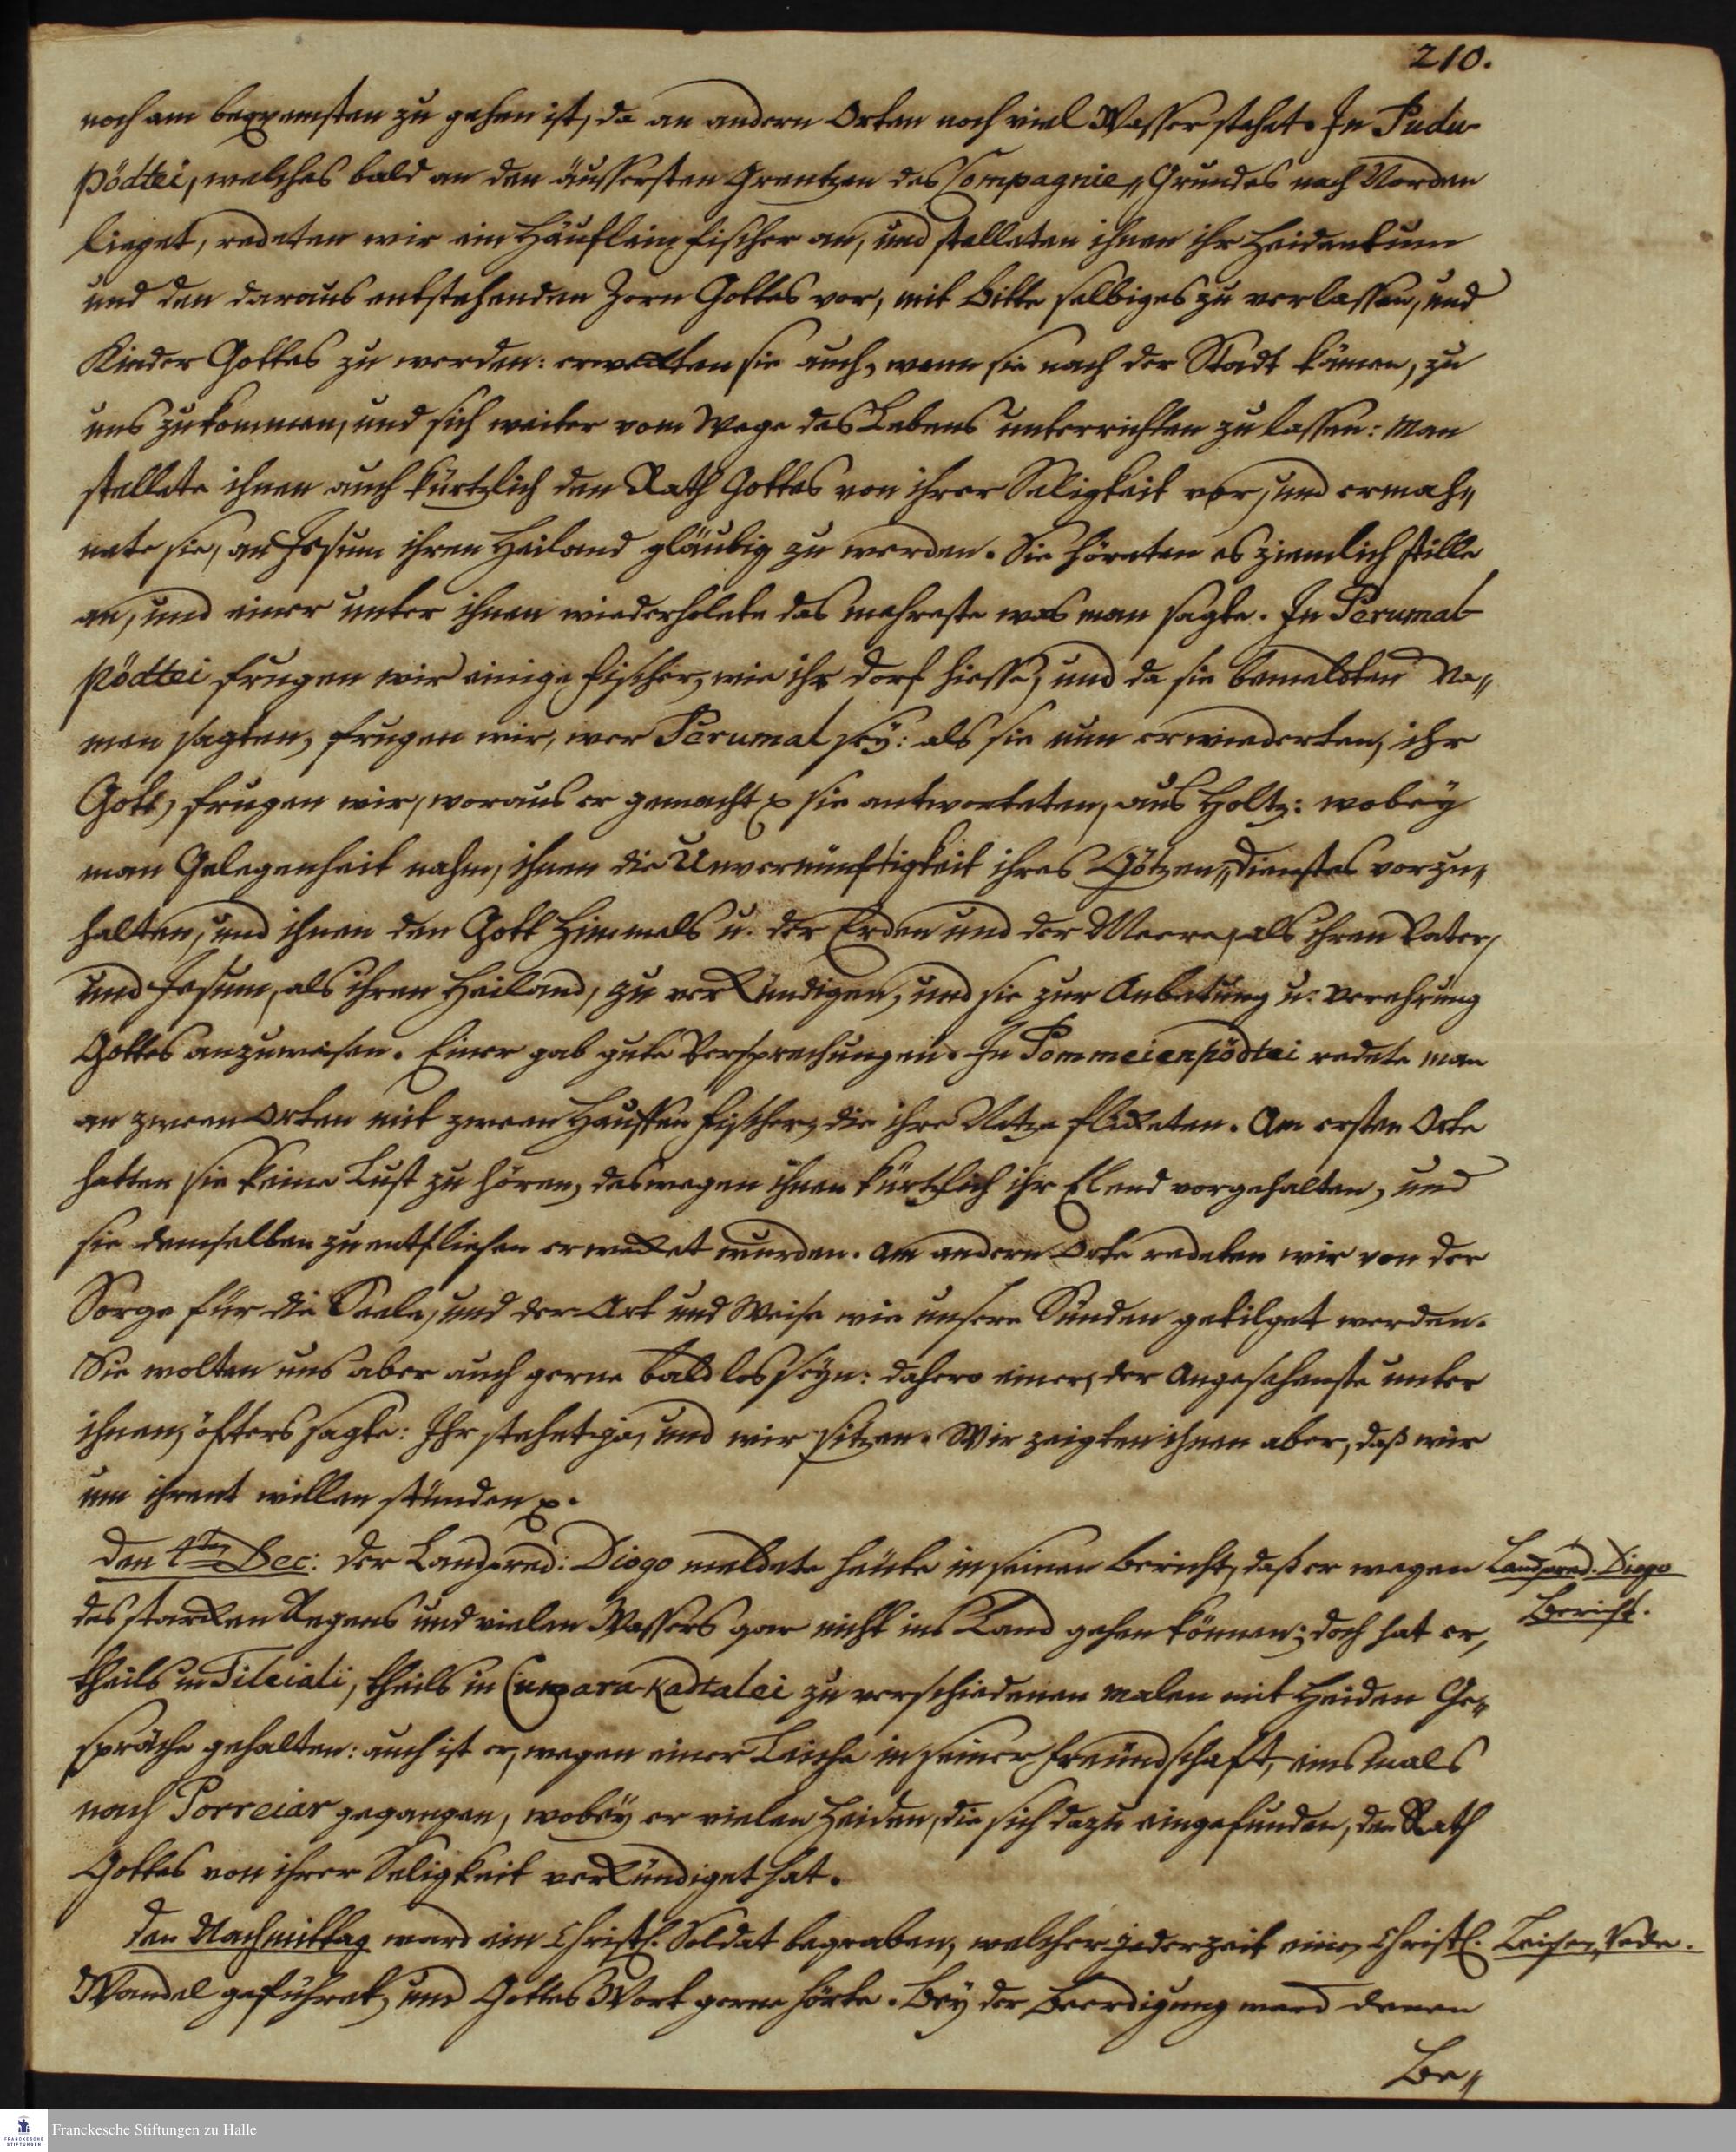 210.
noch am beqvemsten zu gehen ist, da an andern Orten noch viel Wasser stehet. In Pudu-
pödtei, welches bald an den äussersten Grentzen des Compagnie„Grundes nach Norden
lieget, redeten wir ein Häuflein Fischer an, und stelleten ihnen ihr Heidentum
und den daraus entstehenden Zorn Gottes vor, mit Bitte selbiges zu verlassen, und
Kinder Gottes zu werden: erweckten sie auch, wenn sie nach der Stadt kämen, zu
uns zukommen, und sich weiter vom Wege des Lebens unterrichten zu lassen: Man
stellete ihnen auch kürtzlich den Rath Gottes von ihrer Seligkeit vor, und ermah„
nete sie, an Jesum ihren Heiland gläubig zu werden. Sie höreten es ziemlich stille
an, und einer unter ihnen wiederholete das mehreste was man sagte. In Perumal-
pödtei frugen wir einige Fischer, wie ihr Dorf hiesse, und da sie bemeldten Na„
men sagten, frugen wir, wer Perumal sey: als sie nun erwiederten, ihr
Gott, frugen wir, woraus er gemacht sie antworteten, aus Holtz: wobey
man Gelegenheit nahm, ihnen die Unvernünftigkeit ihres Götzen„Dienstes vorzu„
halten, und ihnen den Gott Himmels u. der Erden und der Meere, als ihren Vater,
und Jesum, als ihren Heiland, zu verkündigen, und sie zur Anbetung u. Verehrung
Gottes anzuweisen. Einer gab gute Versprechungen. In Pommeienpödtei redete man
an zween Orten mit zween Hauffen Fischer, die ihre Netze flickten. Am ersten Orte
hatten sie keine Lust zu hören, deswegen ihnen kürtzlich ihr Elend vorgehalten, und
sie demselben zu entfliehen erwecket wurden. Am andern Orte redeten wir von der
Sorge für die Seele, und der Art und Weise wie unsere Sünden getilget werden.
Sie wolten uns aber auch gerne bald los seyn: dahero einer, der Angesehenste unter
ihnen, öfters sagte: Ihr stehet ja, und wir sitzen. Wir zeigten ihnen aber, daß wir
um ihrent willen stünden
Den 4ten Dec: Der Landpred: Diogo meldete heute in seinen Bericht, daß er wegen
Landpred. Diogo
Bericht.
des starcken Regens und vielen Wassers gar nicht ins Land gehen können; doch hat er,
theils in Tileiali, theils in zu verschiedenen malen mit Heiden Ge„
spräche gehalten: auch ist er, wegen einer Leiche in seiner Freundschaft, einsmals
nach Porreiar gegangen, wobey er vielen Heiden, die sich dazu eingefunden, den Rath
Gottes von ihrer Seligkeit verkündiget hat.
Den Nachmittag ward ein Christl. Soldat begraben, welcher jederzeit einen Christl.
Leichen, Rede.
Wandel geführet, und Gottes Wort gerne hörte. Bey der Beerdigung ward denen
Be„
FRANCKESCHE STIFTUNGEN
Franckesche Stiftungen zu Halle